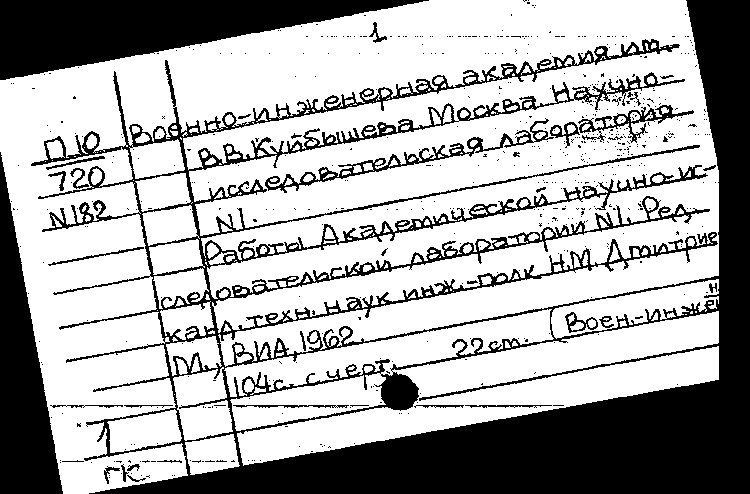 1
Военно-инженерная академия им.
П.10 В.В. Куйбышева. Москва. Научно-
720 исследовательская лаборатория
N182 N1.
Работы Академической научно-ис-
следовательской лаборатории N1. Ред.
канд. техн. наук инж.-полк Н.М. Дмитрие
М., ВИА, 1962.
104с. с черт. 22см. (Воен.-инже
1
ГК